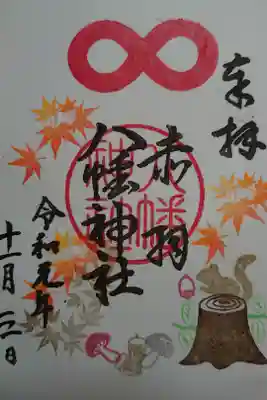 奉拝
赤羽
八幡神社
令和元年
十一月二日